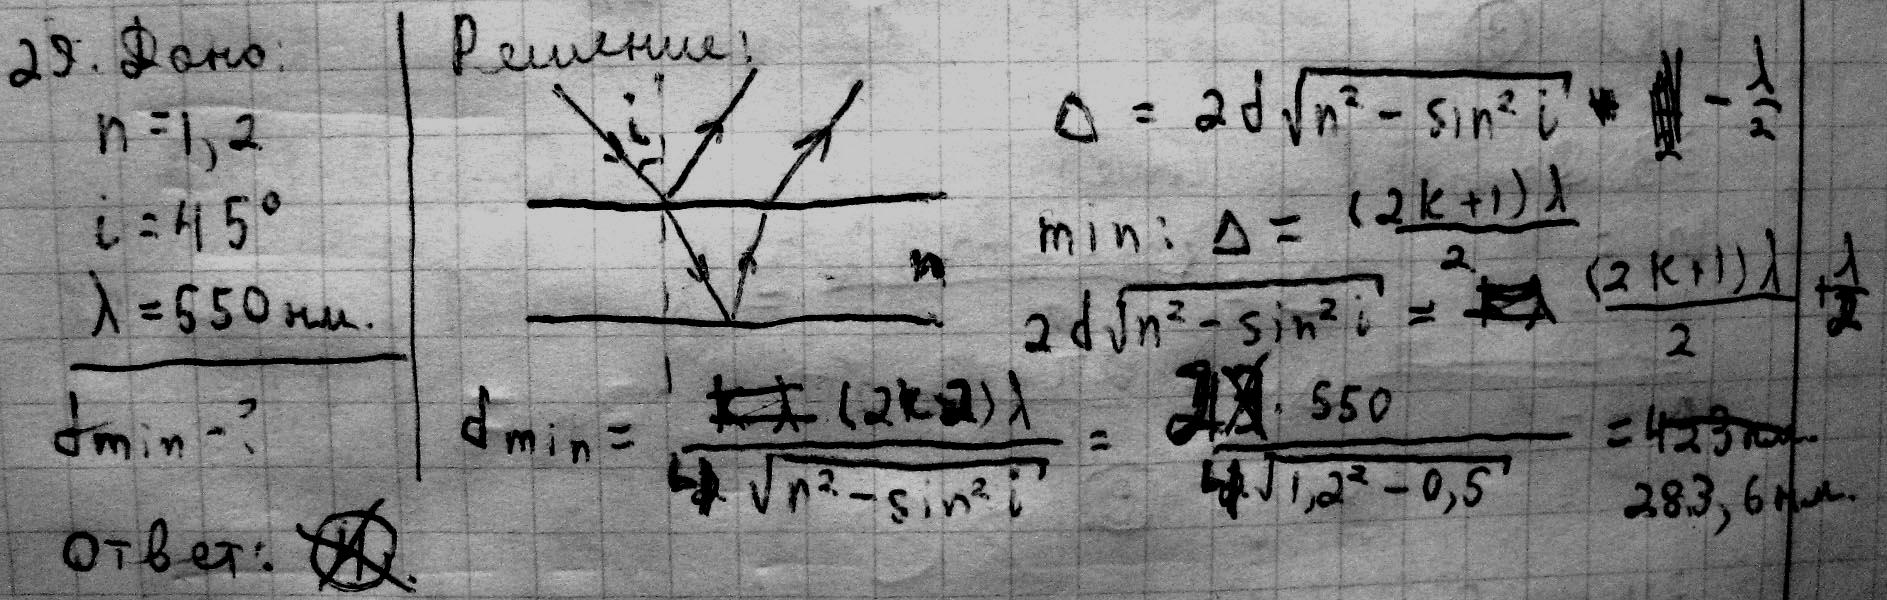 29. Дано:
n = 1,2
i = 45°
λ = 550 нм.
dmin - ?
Ответ: 
Решение:
i
n
Δ = 2d√(n² - sin² i) - λ/2
min: Δ = (2k+1)λ/2
2d√(n² - sin² i) = (2k+1)λ/2 + λ/2
dmin = (2k+2)λ / 4√(n² - sin² i) = 2 · 550 / 4√(1,2² - 0,5) = 423 нм.
283,6 нм.